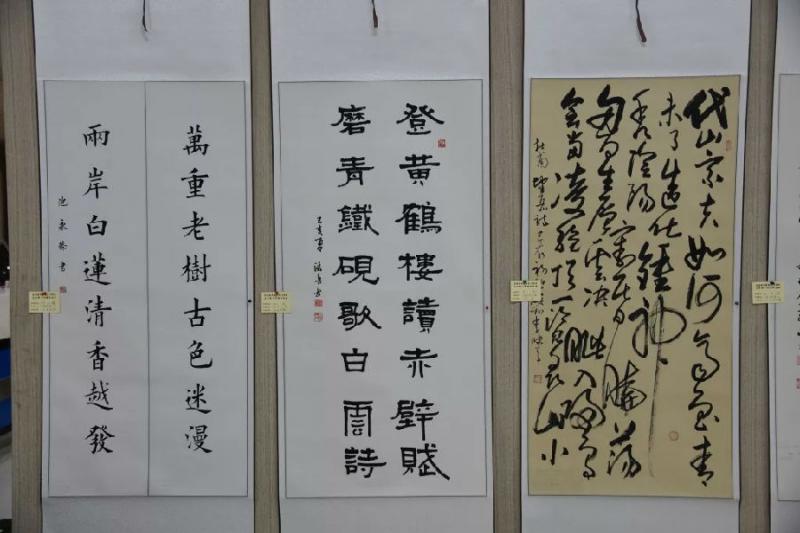 萬重老樹古色迷漫
兩岸白蓮清香越發
登黃鶴樓讀赤壁賦
磨青鐵硯歌白雲詩
岱山宗夫如何齊魯青
未了造化鍾神
秀陰陽割昏曉蕩
胸生層雲決眥入歸鳥
會當凌絕頂一覽眾山小
杜甫望岳詩